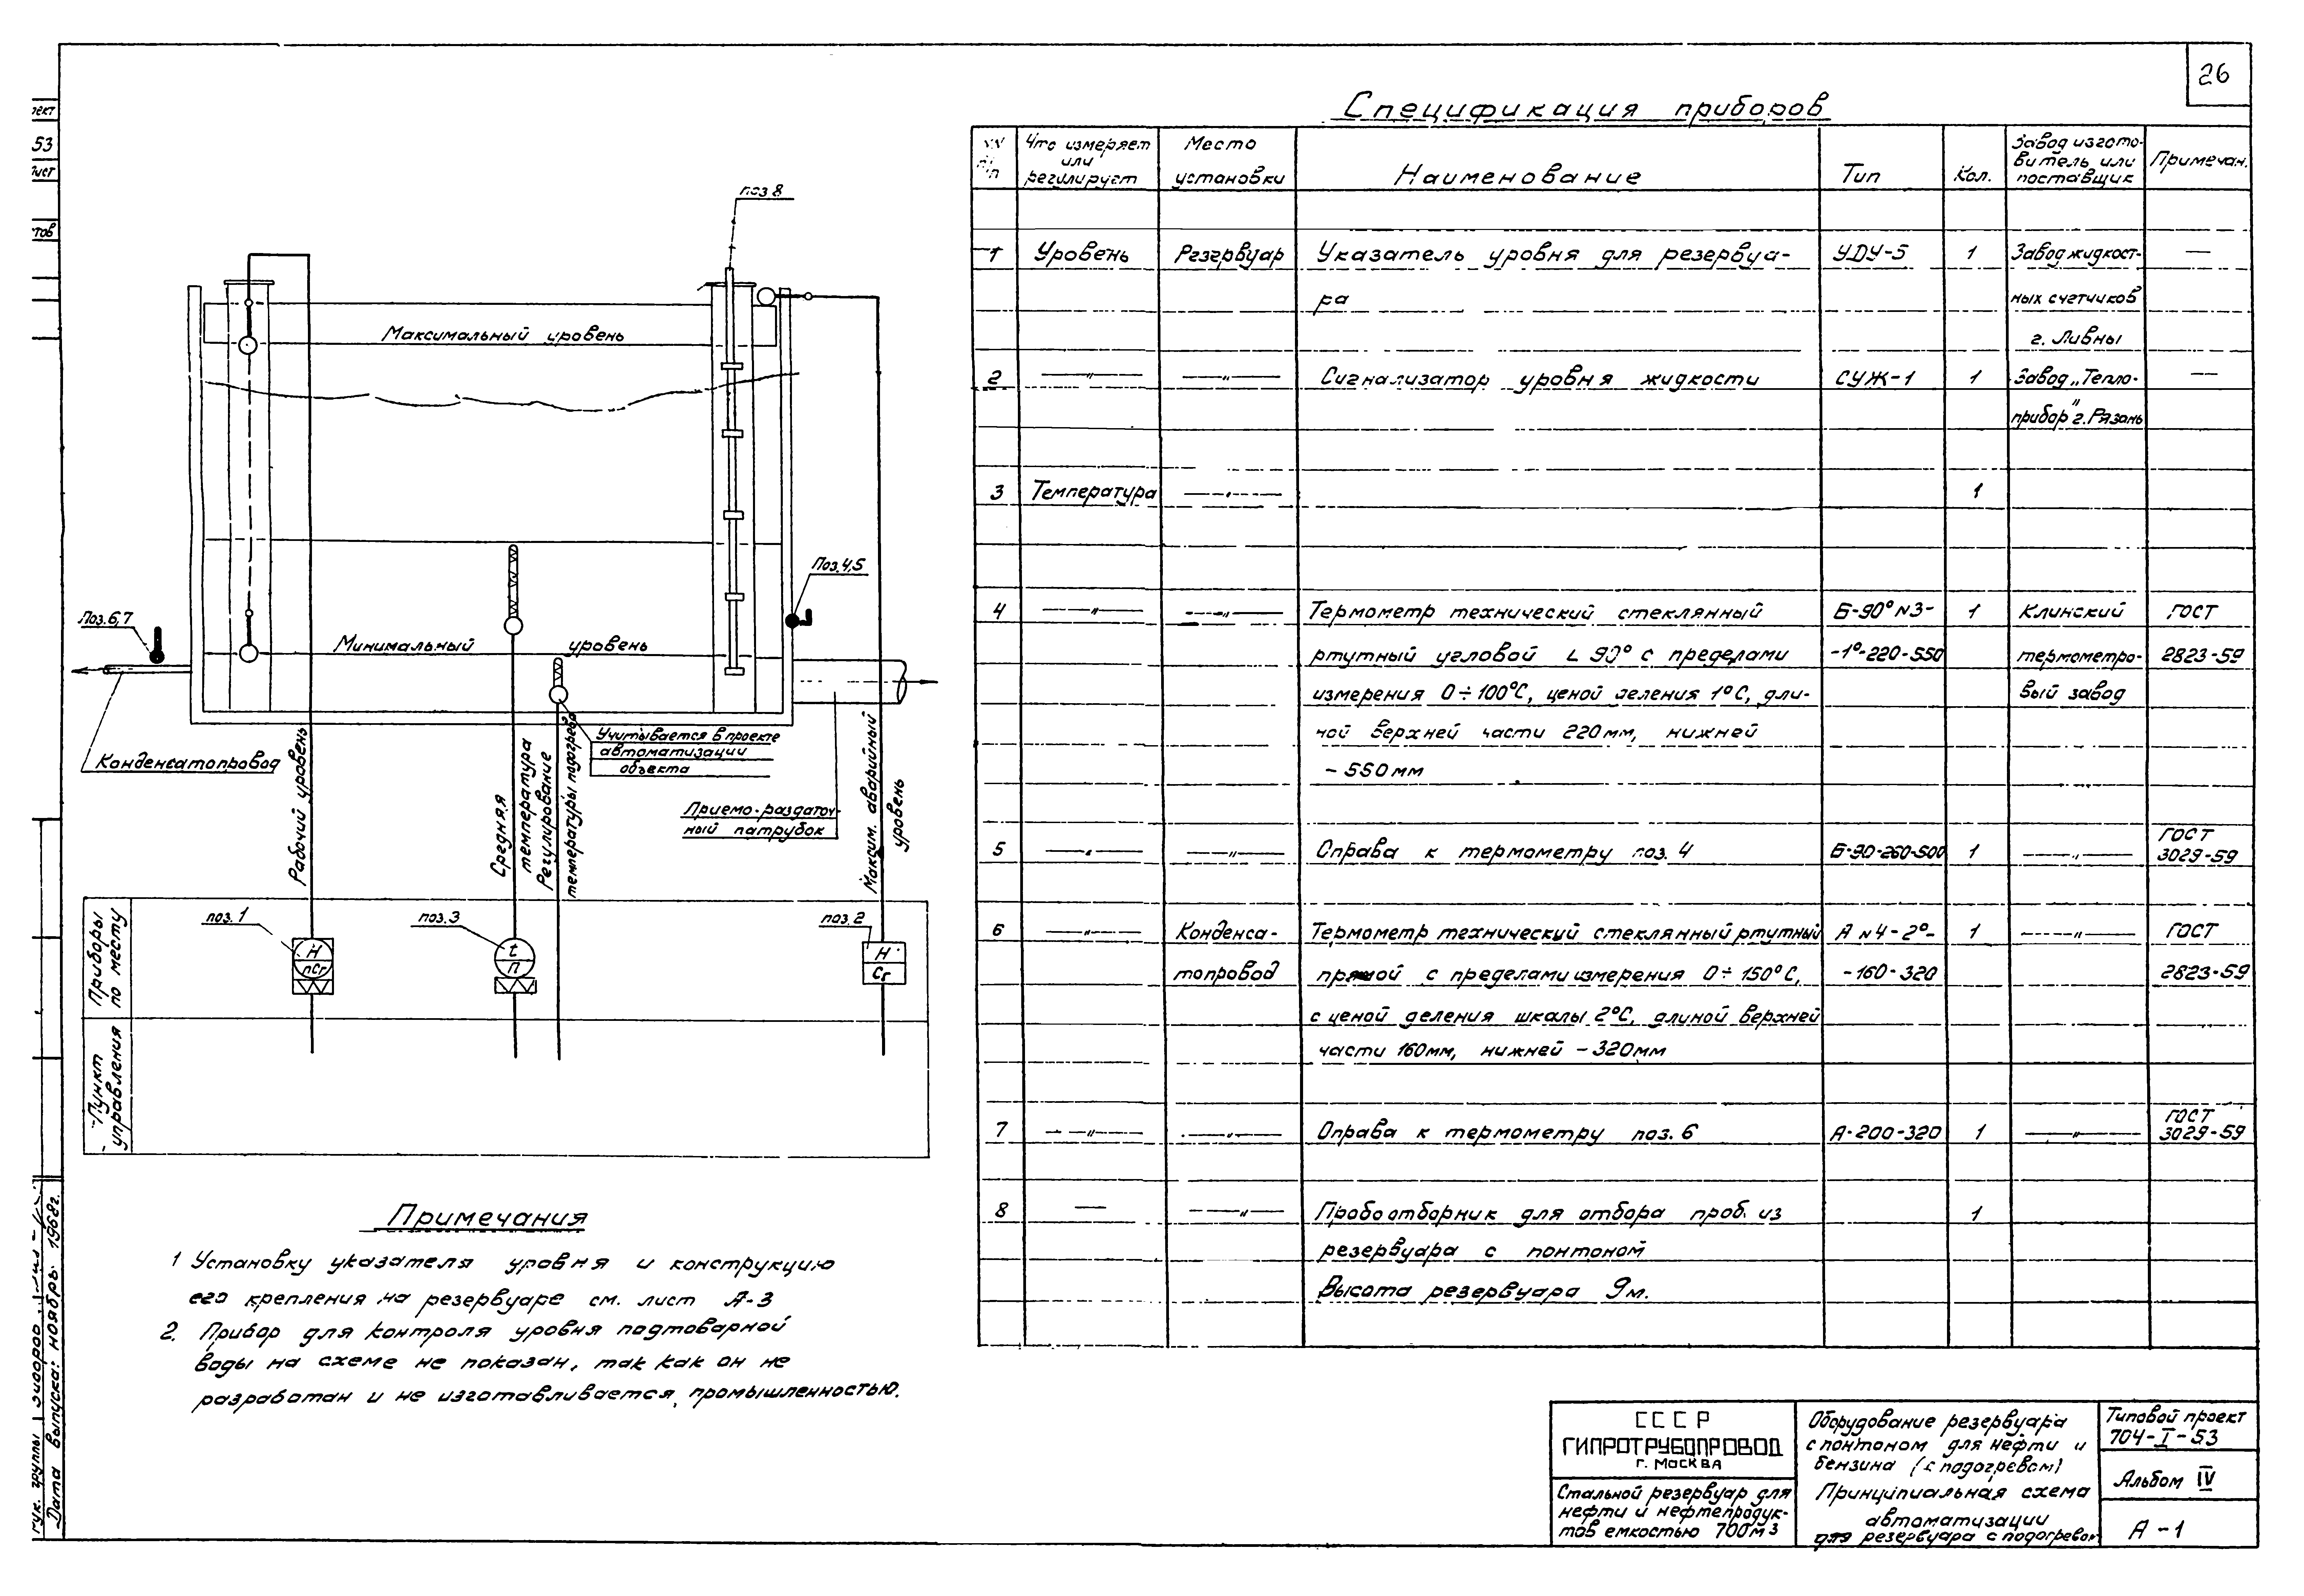 26
Спецификация приборов
NN п/п | Что измеряет или регулирует | Место установки | Наименование | Тип | Кол. | Завод изгото-витель или поставщик | Примечан.
1 | Уровень | Резервуар | Указатель уровня для резервуа- | УДУ-5 | 1 | Завод жидкост- | —
ра | ных счетчиков
г. Ливны
2 | —"— | —"— | Сигнализатор уровня жидкости | СУЖ-1 | 1 | Завод „Тепло- | —
прибор" г. Рязань
3 | Температура | —"— | 1
4 | —"— | —"— | Термометр технический стеклянный | Б-90° N3- | 1 | Клинский | ГОСТ
ртутный угловой ∟ 90° с пределами | -1°-220-550 | термометро- | 2823-59
измерения 0÷100°С, ценой деления 1°С, дли- | вый завод
ной верхней части 220мм, нижней
- 550мм
5 | —"— | —"— | Оправа к термометру поз. 4 | Б-90-260-500 | 1 | —"— | ГОСТ 3029-59
6 | —"— | Конденса- | Термометр технический стеклянный ртутный | А N4-2°- | 1 | —"— | ГОСТ
топровод | прямой с пределами измерения 0÷150°С, | -160-320 | 2823-59
с ценой деления шкалы 2°С, длиной верхней
части 160мм, нижней - 320мм
7 | —"— | —"— | Оправа к термометру поз. 6 | А-200-320 | 1 | —"— | ГОСТ 3029-59
8 | — | —"— | Пробоотборник для отбора проб из | 1
резервуара с понтоном
Высота резервуара 9м.
поз 8
Максимальный уровень
Поз. 4,5
Поз. 6,7
Минимальный уровень
Конденсатопровод
Учитывается в проекте
автоматизации
объекта
Приемо-раздаточ-
ный патрубок
Рабочий уровень
Средняя
температура
Регулирование
температуры подогрева
Максим. аварийный
уровень
Приборы
по месту
поз. 1
Н
пСг
поз. 3
t
П
поз. 2
Н
Сг
Пункт
управления
Примечания
1 Установку указателя уровня и конструкцию
его крепления на резервуаре см. лист А-3
2. Прибор для контроля уровня подтоварной
воды на схеме не показан, так как он не
разработан и не изготавливается промышленностью.
СССР
ГИПРОТРУБОПРОВОД
г. Москва
Стальной резервуар для
нефти и нефтепродук-
тов емкостью 700м3
Оборудование резервуара
с понтоном для нефти и
бензина (с подогревом)
Принципиальная схема
автоматизации
для резервуара с подогревом
Типовой проект
704-I-53
Альбом IV
А-1
53
Дата выпуска: ноябрь 1968г.
рук. группы